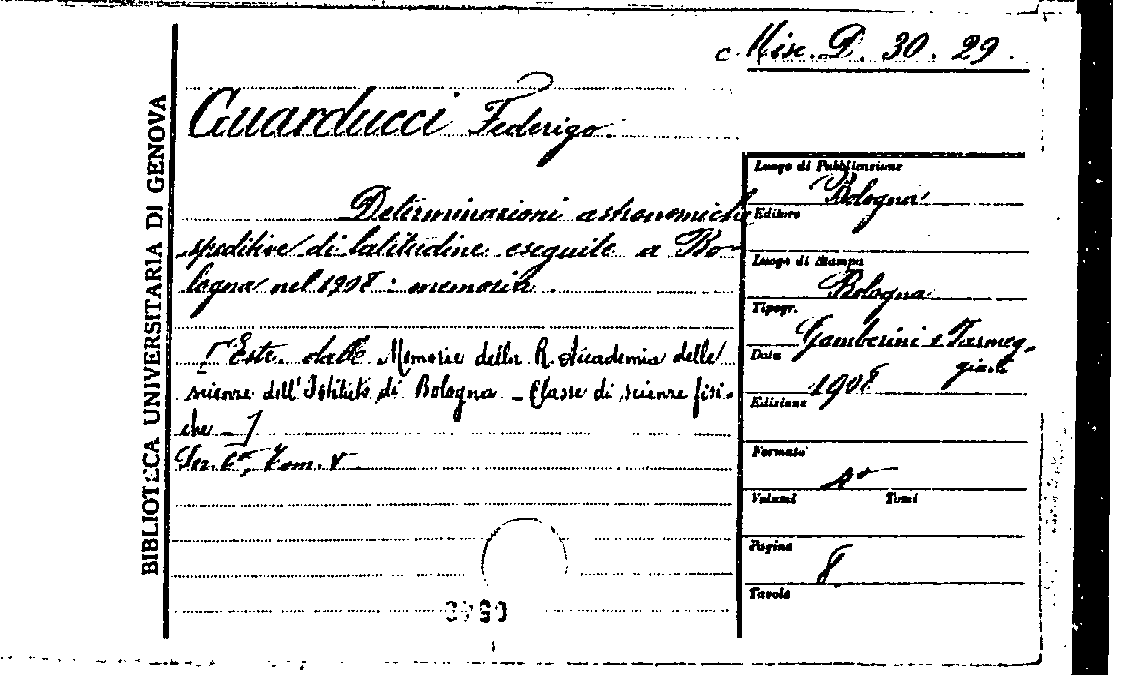 Misc. D. 30. 29.
BIBLIOTECA UNIVERSITARIA DI GENOVA
Guarducci Federigo.
Determinazioni astronomiche
speditive di latitudine eseguite a Bo-
logna nel 1908: memoria.
[Estr. dalle Memorie della R. Accademia delle
scienze dell'Istituto di Bologna - Classe di scienze fisi-
che -]
Ser. 6ª, Tom. V
Luogo di Pubblicazione
Bologna
Editore
Luogo di Stampa
Bologna
Tipogr.
Gamberini e Parmeg-
giani
Data
1908
Edizione
Formato
4º
Volumi Tomi
Pagine
8
Tavole